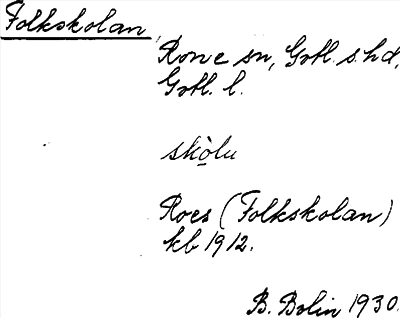 Folkskolan
Rone sn, Gotl. s. hd,
Gotl. l.
skòlu
Roes (Folkskolan)
kb 1912.
B. Bolin 1930.